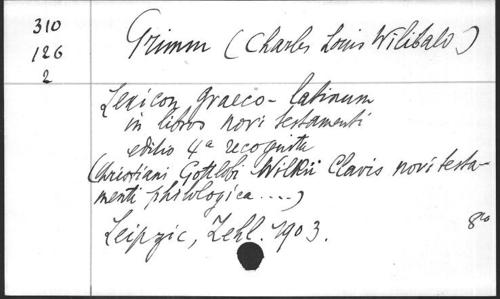 310
126
2
Grimm (Charles Louis Wilibald)
Lexicon graeco-latinum
in libros novi testamenti
editio 4a recognita
(Christiani Gottlobi Wilkii Clavis novi testa-
menti philologica....)
Leipzic, Zehl. 1903.
8vo